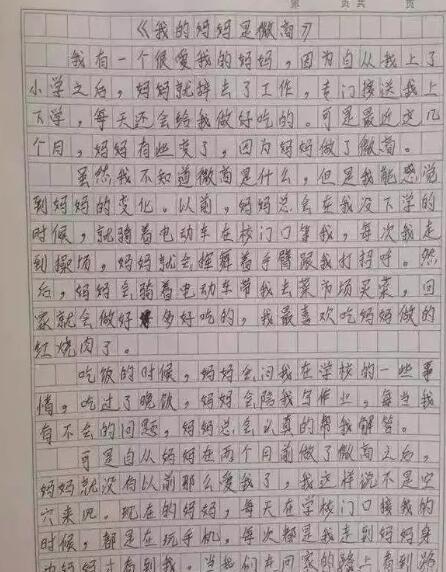 第 页 共 页
《我的妈妈是微商》
我有一个很爱我的妈妈，因为自从我上了
小学之后，妈妈就辞去了工作，专门接送我上
下学，每天还会给我做好吃的。可是最近这几
个月，妈妈有些变了，因为妈妈做了微商。
虽然我不知道微商是什么，但是我能感觉
到妈妈的变化。以前，妈妈总会在我没下学的
时候，就骑着电动车在校门口等我，每次我走
到操场，妈妈就会挥舞着手臂跟我打招呼。然
后，妈妈会骑着电动车带我去菜市场买菜，回
家就会做好多好吃的，我最喜欢吃妈妈做的
红烧肉了。
吃饭的时候，妈妈会问我在学校的一些事
情，吃过了晚饭，妈妈会陪我写作业，每当我
有不会的问题，妈妈总会认真的帮我解答。
可是自从妈妈在两个月前做了微商之后，
妈妈就没有以前那么爱我了，我这样说不是空
穴来风。现在的妈妈，每天在学校门口接我的
时候，都是在玩手机，每次都是我走到妈妈身
妈妈才看到我。当我们在回家的路上看到路